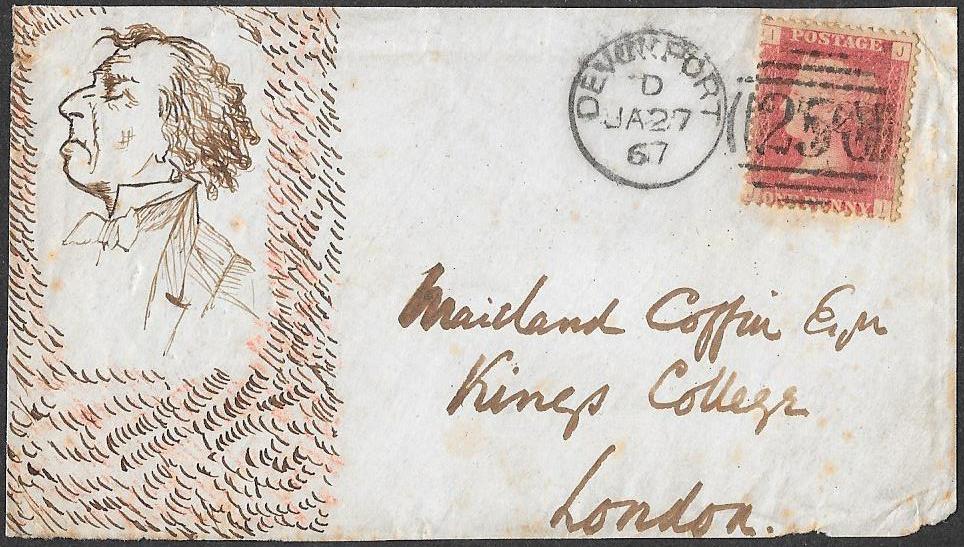 DEVONPORT
D
JA27
67
J J
POSTAGE
250
ONE PENNY
J
Maitland Coffin Esqr
Kings College
London.